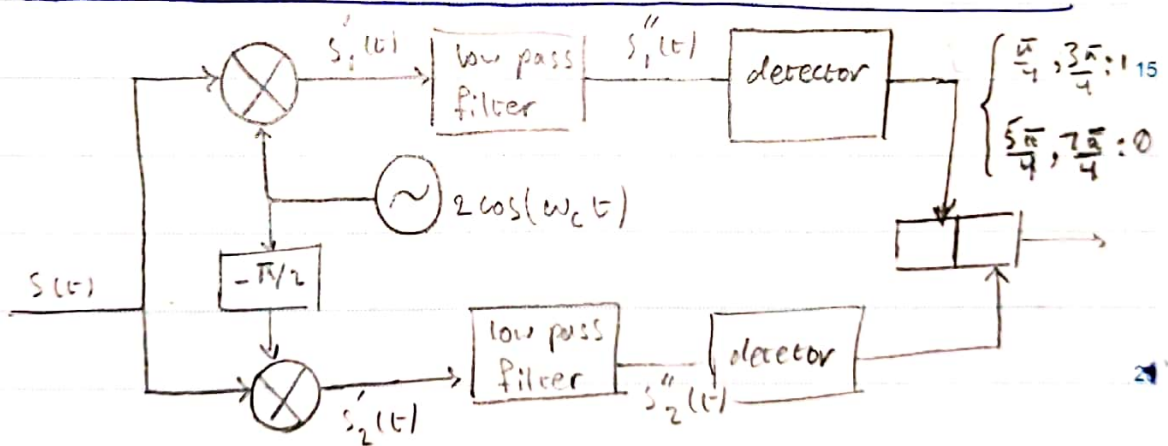 s₁'(t)
low pass
filter
s₁''(t)
detector
π/4, 3π/4 : 1
5π/4, 7π/4 : 0
15
2cos(ω_c t)
-π/2
s(t)
low pass
filter
detector
s₂'(t)
s₂''(t)